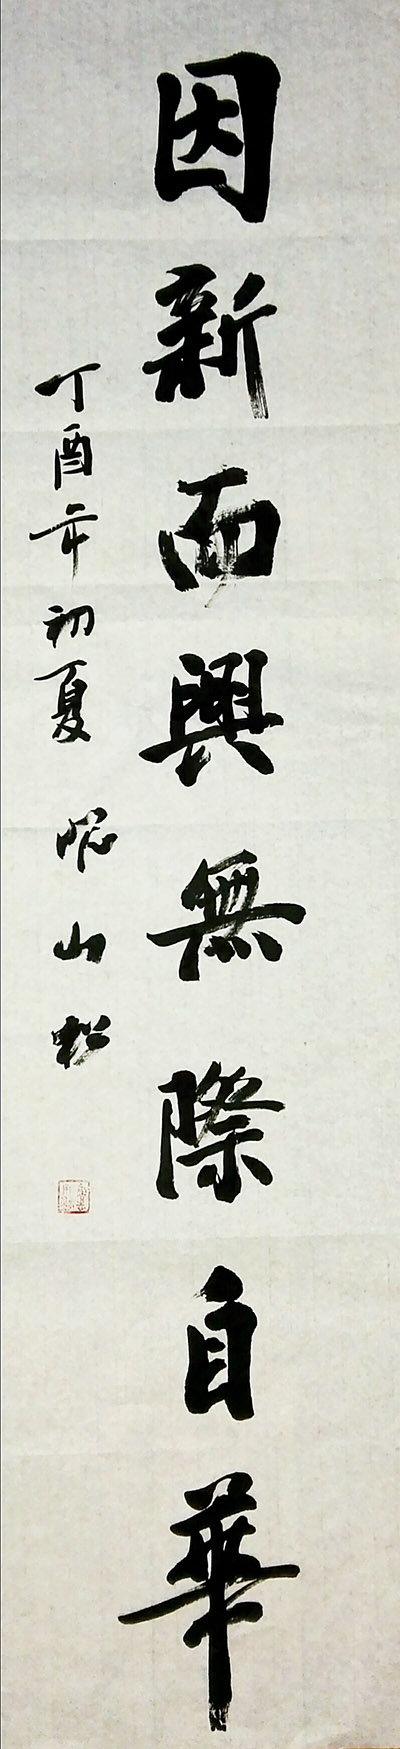 因新而興無際自華
丁酉年初夏 山松